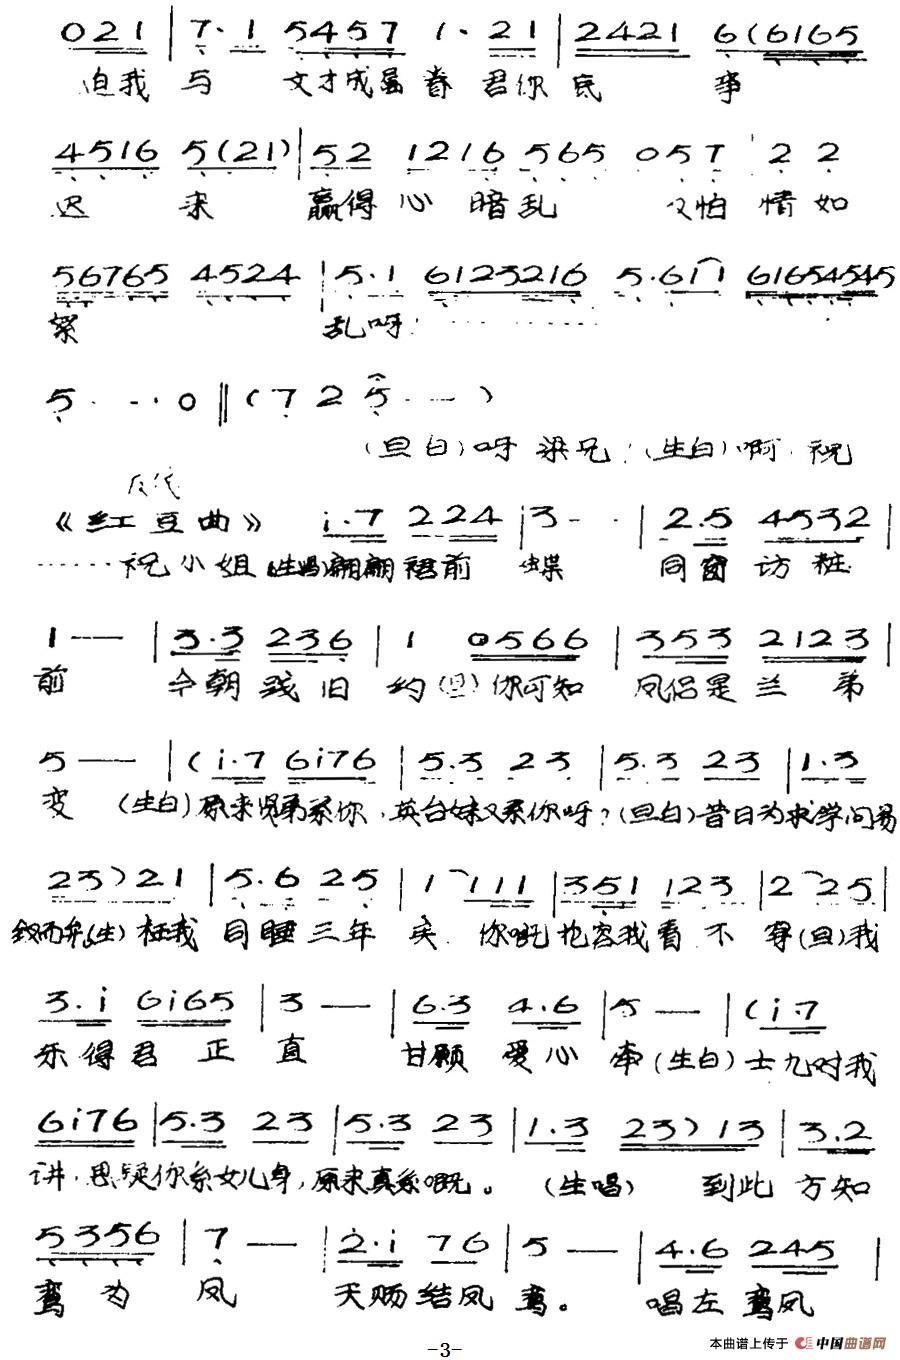 0 2 1 | 7·1 5457 1·21 | 2421 6(6165
迫我 与 文才成眷 君你 底 事
4516 5(21) | 52 1216 565 057 22
迟 来 赢得心 暗乱 又怕 情如
56765 4524 | 5·1 6123216 5·611 61654545
絮 乱呀
5···0 || (7 2 5···)
(旦白)呀 梁兄 (生白)啊 祝
反线
《红豆曲》 i·7 224 | 3·· | 2·5 4532 |
······祝小姐(生唱)翩翩裙前 蝶 同窗 访 粧
1—— | 3·3 236 | 1 0566 | 353 2123 |
前 今朝 践旧 约(旦)你可知 凤侣是兰 弟
5—— | (i·7 6i76 | 5·3 23 | 5·3 23 | 1·3
变 (生白)原来贤弟系你,英台妹又系你呀?(旦白)昔日为求学问易
23)21 | 5·6 25 | 1 111 | 351 123 | 2 25 |
钗而弁(生)枉我 同睡三年 你嘅 容我看 不 (旦)我
3·i 6i65 | 3—— | 6·3 4·6 | 5—— | (i·7
乐得君 正 直 甘愿 爱心 牵(生白)士九时我
6i76 | 5·3 23 | 5·3 23 | 1·3 23)13 | 3·2
讲,思疑你系女儿身,原来真系嘅。 (生唱) 到此 方知
5356 | 7—— | 2·i 76 | 5—— | 4·6 245 |
鸾为 凤 天赐结凤 鸾。 唱左 鸾凤
-3-
本曲谱上传于 中国曲谱网